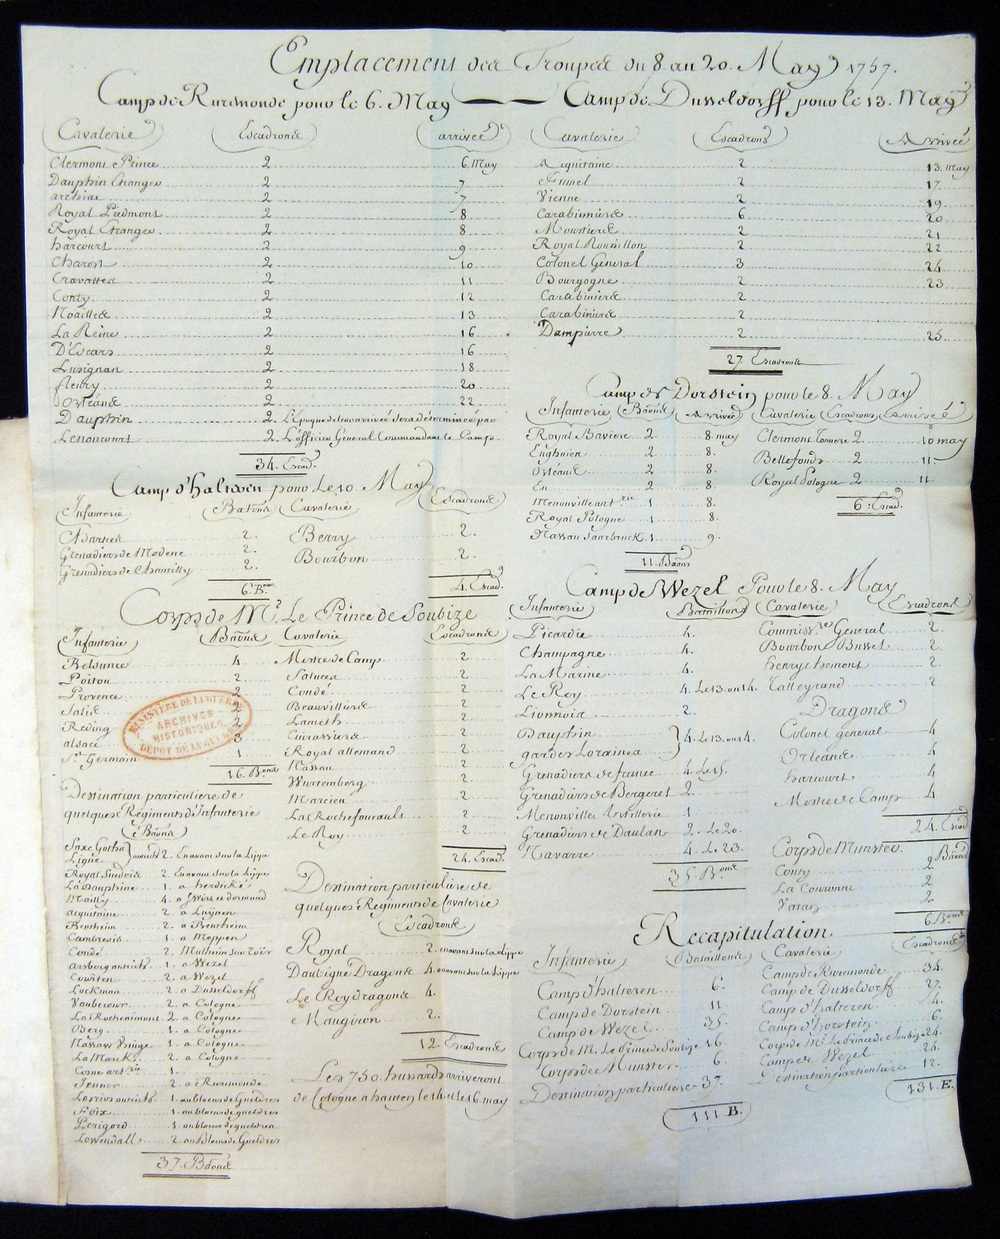 Emplacement des Troupes du 8 au 20. May 1757.
Camp de Ruremonde pour le 6. May
Cavalerie Escadrons arrivée
Clermont Prince 2 6. May
Dauphin Etranger 2 7
archiac 2 7
Royal Piedmont 2 8
Royal Etranger 2 8
harcourt 2 9
Charost 2 10
Cravattes 2 11
Conty 2 12
Noailles 2 13
La Reine 2 16
D'Escars 2 16
Lusignan 2 18
fleury 2 20
Orléans 2 22
Dauphin 2. L'Epoque de leur arrivée sera déterminée par
Lenoncourt 2. L'officier General Commandant le Camp.
34. Escad.
Camp d'haltren pour Le 10. May
Infanterie Batons Cavalerie Escadrons
2. Berry 2.
Grenadiers de Modene 2. Bourbon 2.
Grenadiers de Chantilly 2.
6. Bons 4. Escad.
Corps de Mr. Le Prince de Soubize
Infanterie Baons Cavalerie Escadrons
Belsunce 4. Mestre de Camp 2
Poitou 2. Saluces 2
Provence 2 Condé 2
Salis 2 Beauvilliers 2
Reding 2 Lameth 2
alsace 3 Cuirassiers 2
St. Germain 1 Royal allemand 2
16. Bons Nassau 2
Wurtemberg 2
Marcieu 2
La Rochefoucault 2
Le Roy 2
24. Escad.
Destination particuliere de
quelques Regiments d'Infanterie
Baons
Saxe Gotha
Ligne 2. En avant sur la Lippe
Royal Suedois 2. En avant sur la Lippe
La Dauphine 1. a herdicke
Mailly 4. a Unna et dormund
aquitaine 2. a Luynen
Bentheim 2. a Bentheim
Cambresis 1. a Meppen
Condé 2. Mulheim sur Roër
arberg autrich. 1. a Wezel
Courten 2. a Wezel
Lockman 2. a Dusseldorff
Vaubecour 2. a Cologne
La Rochenimont 2 a Cologne
Berg 1. a Cologne
Nassau 1. a Cologne
La Marck 2. a Cologne
1.
Jenner 2. a Ruremonde
Lorrios autrich. 1. au blocus de Gueldres
Foix 1. au blocus de gueldres
Perigord 1. au blocus de gueldres
Lowendall 2. au Blocus de Gueldres
37. Baons
Destination particuliere de
quelques Regiments de Cavalerie
Escadrons
Royal 2. en avant sur la Lippe
Daubigné Dragons 4. en avant sur la Lippe
Le Roy dragons 4.
Maugiron 2.
12. Escadrons
Les 750. hussards arriveront
de Cologne a hauten le 14. et le 16. may
Camp de Dusseldorff pour le 13. May
Cavalerie Escadrons Arrivée
Aquitaine 2 13. may
Fumel 2 17.
Vienne 2 19
Carabiniers 6 20
Moustiers 2 21
Royal Roussillon 2 22
Colonel General 3 24
Bourgogne 2 23.
Carabiniers 2
Carabiniers 2
Dampierre 2 25.
27. Escadrons
Camp de Dorstein pour le 8. May
Infanterie Baons Arrivée Cavalerie Escadrons Arrivée
Royal Baviere 2 8. may Clermont Tonnere 2 10 may
Enghuien 2 8. Bellefonds 2 11.
Orléans 2 8. Royal Pologne 2 11.
Eu 2 8. 6. Escad.
Menonville artrie 1 8.
Royal Pologne 1 8.
Nassau Saarbruck 1 9.
11. Baons
Camp de Wezel Pour le 8. May
Infanterie Bataillons Cavalerie Escadrons
Picardie 4. Commissre General 2
Champagne 4. Bourbon Busset 2
La Marine 4. henrychemont 2
Le Roy 4. Le 13. ou 14. Talleyrand 2
Lionnois 2. Dragons
Dauphin Colonel general 4
gardes Loraines 4. Le 13. ou 14. Orleans 4
Grenadiers de france 4. Le 15. harcourt 4
Grenadiers de Bergeret 2. Mestre de Camp 4
Menonville Artillerie 1. 24. Escad.
Grenadiers de Daulan 2. Le 20.
Navarre 4. Le 23.
35. Bons
Corps de Munster Baons
Conty 2
La Couronne 2
Vatan 2
6. Bons
Recapitulation
Infanterie Bataillons Cavalerie Escadrons
Camp d'haltren 6. Camp de Ruremonde 34.
Camp de Dorstein 11 Camp de Dusseldorff 27.
Camp de Wezel 35. Camp d'haltren 4.
Corps de M. Le Prince de Soubize 16. Camp d'horstein 6.
Corps de Munster 6. Corps de Mr. Le Prince de Soubize 24.
Destination particuliere 37. Camp de Wezel 24.
111. B. Destination particuliere 12.
131. E.
MINISTÈRE DE LA GUERRE
ARCHIVES
HISTORIQUES
DÉPÔT DE LA GUERRE